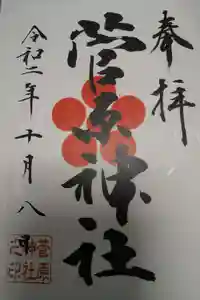 奉拝
菅原神社
令和二年十月八
菅原
神社
之印